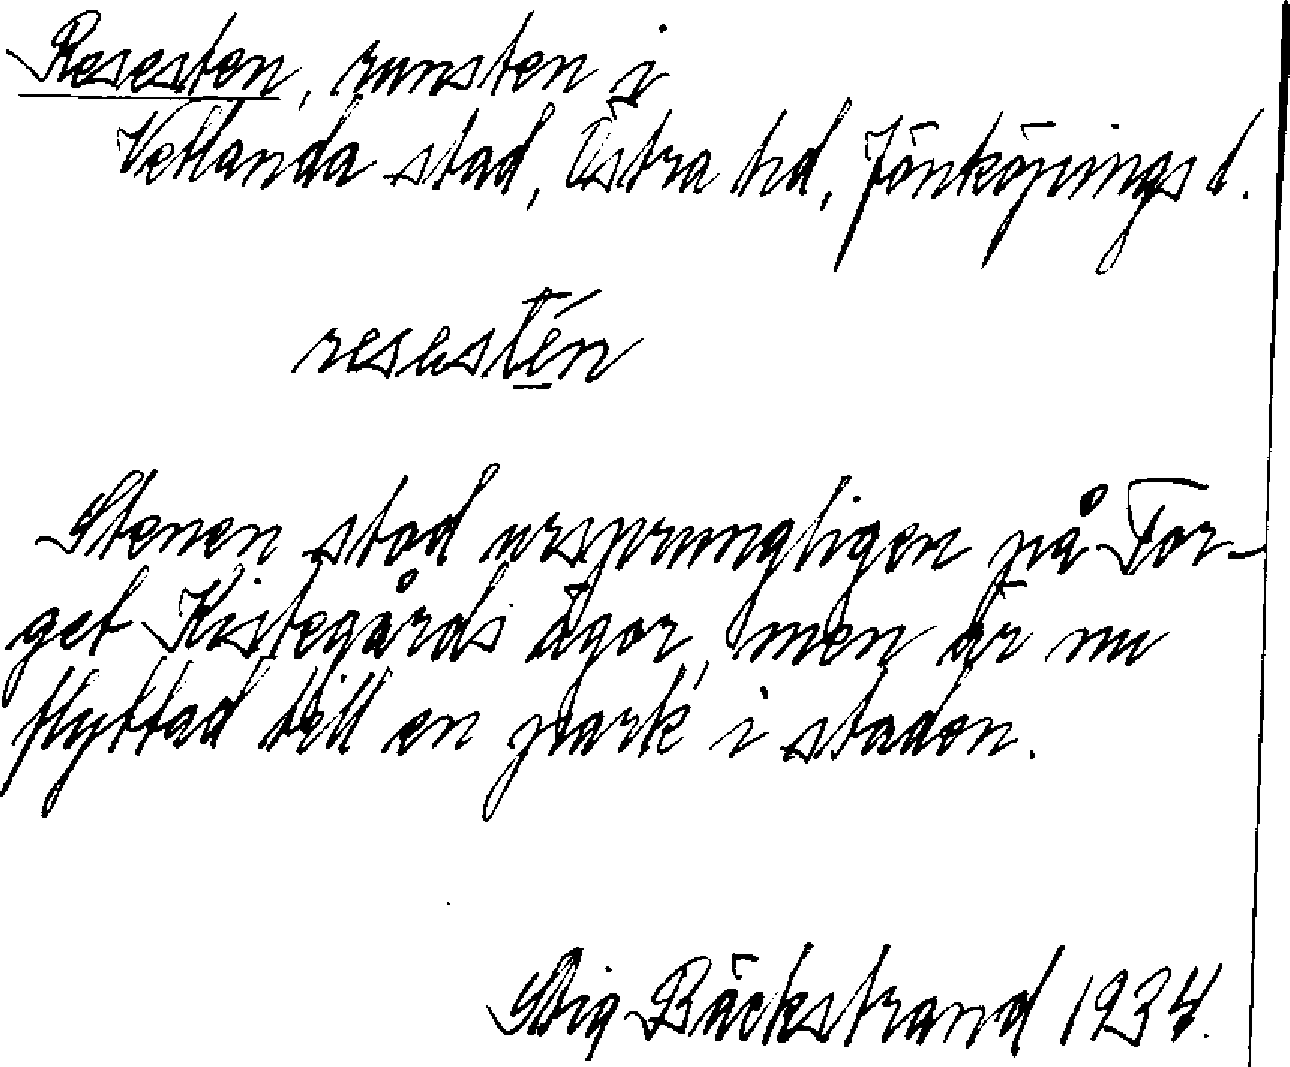 Resesten, runsten i
Vetlanda stad, Östra hd, Jönköpings l.
resestén
Stenen stod ursprungligen på Tor-
get Kistegårds ägor, men är nu
flyttad till en park i staden.
Stig Bäckstrand 1934.